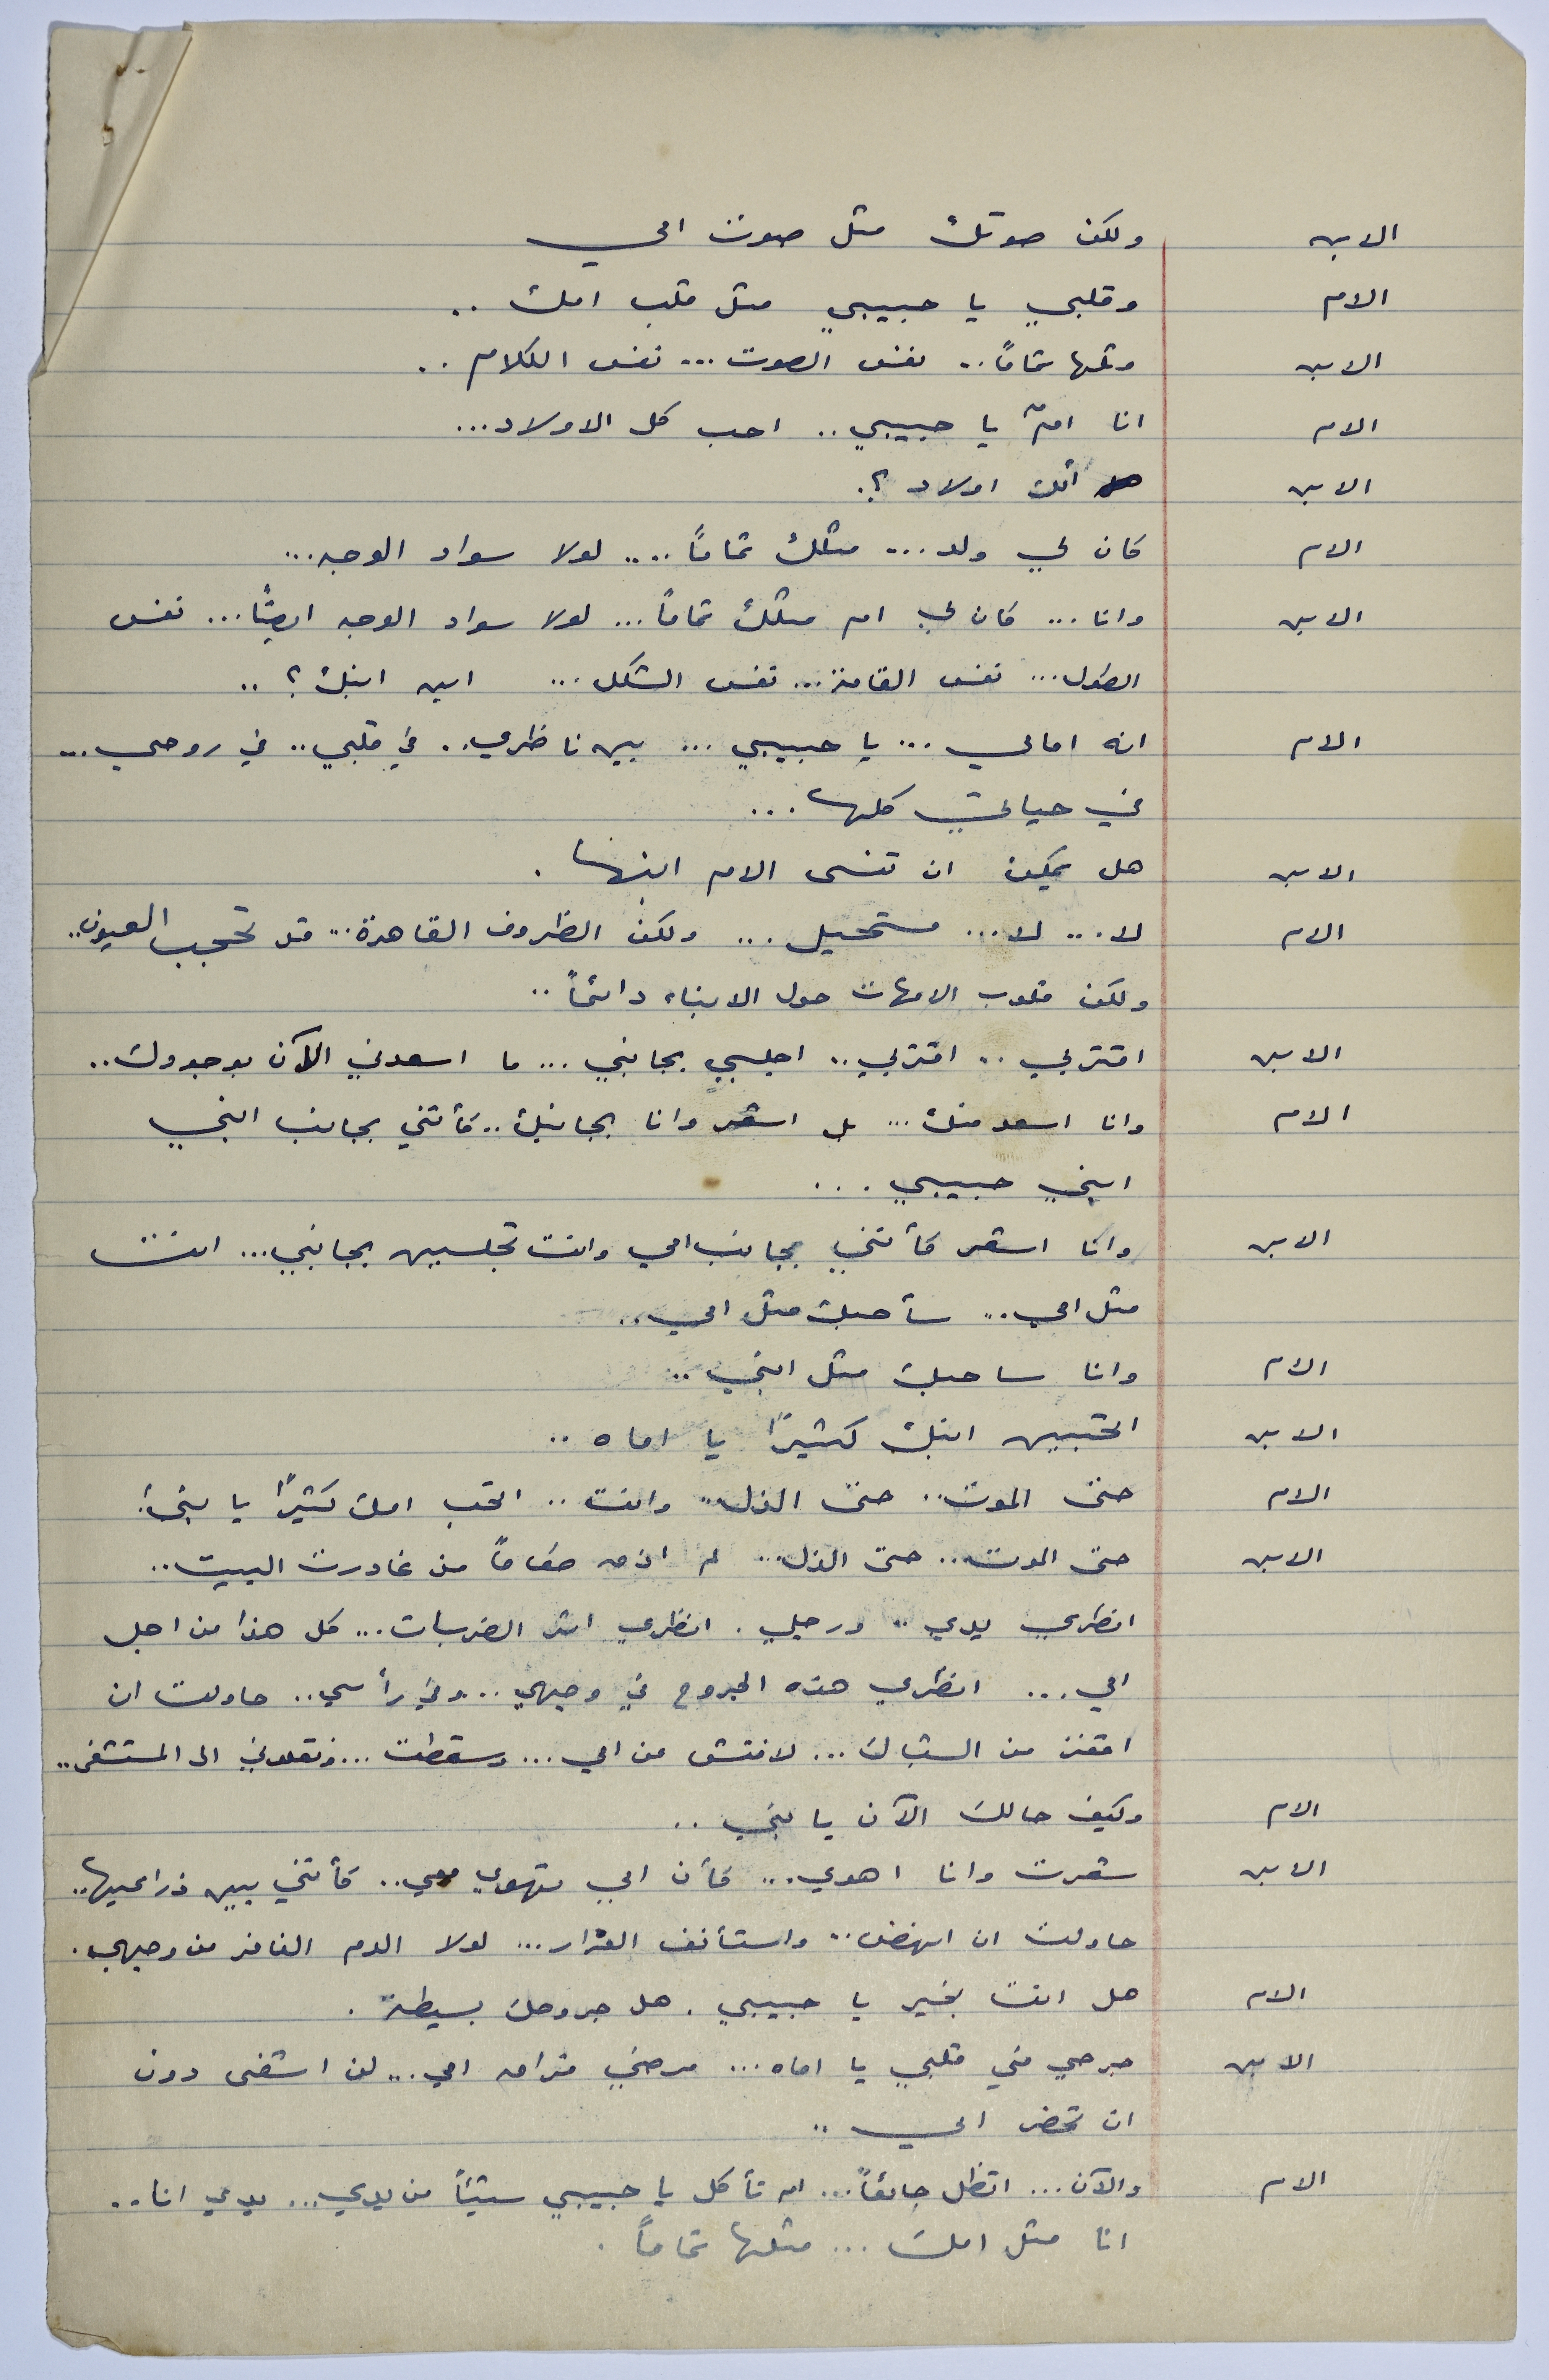 الابن ولكن صوتك مثل صوت امي
الام وقلبي يا حبيبي مثل قلب امك ..
الابن ومثلها تماماً .. نفس الصوت ... نفس الكلام ..
الام انا امٌ يا حبيبي .. احب كل الاولاد ...
الابن ألك اولاد ؟.
الام كان لي ولد ... مثلك تماماً .... لولا سواد الوجه ...
الابن وانا ... كان لي ام مثلك تماماً ... لولا سواد الوجه ايضاً ... نفس
الطول ... نفس القامة ... نفس الشكل ... اين ابنك ؟ ..
الام انه امامي ... يا حبيبي ... بين ناظري .. في قلبي .. في روحي ...
في حياتي كلها ...
الابن هل يمكن ان تنسى الام ابنها .
الام لا ... لا ... مستحيل ... ولكن الظروف القاهرة ... قد تحجب العيون ..
ولكن قلوب الامهات حول الابناء دائماً ..
الابن اقتربي .. اقتربي .. اجلسي بجانبي ... ما اسعدني الآن بوجودك ..
الام وانا اسعد منك ... بل اشعر وانا بجانبك .. كأنني بجانب ابني
ابني حبيبي ...
الابن وانا اشعر كأنني بجانب امي وانت تجلسين بجانبي ... انت
مثل امي .. سأحبك مثل امي ..
الام وانا ساحبك مثل ابني ..
الابن اتحبين ابنك كثيراً يا اماه ..
الام حتى الموت .. حتى الذل .. وانت .. اتحب امك كثيراً يا بني؟
الابن حتى الموت ... حتى الذل ... لم اذق طعاماً منذ غادرت البيت ..
انظري يدي .. ورجلي . انظري اثر الضربات ... كل هذا من اجل
امي ... انظري هذه الجروح في وجهي .. وفي رأسي .. حاولت ان
اقفز من الشباك ... لافتش عن امي ... وسقطت ... ونقلوني الى المستشفى ..
الام وكيف حالك الآن يا بني ..
الابن شعرت وانا اهوي ... كأن امي تهوي معي .. كأنني بين ذراعيها ..
حاولت ان انهض .. واستأنف الفرار ... لولا الدم النافر من وجهي .
الام هل انت بخير يا حبيبي . هل جروحك بسيطة .
الابن جرحي في قلبي يا اماه ... مرضي فراق امي ... لن اشفى دون
ان تحضر امي ..
الام والآن ... اتظل جائعاً ... الا تأكل يا حبيبي شيئاً من يدي ... يدي انا ..
انا مثل امك ... مثلها تماماً .